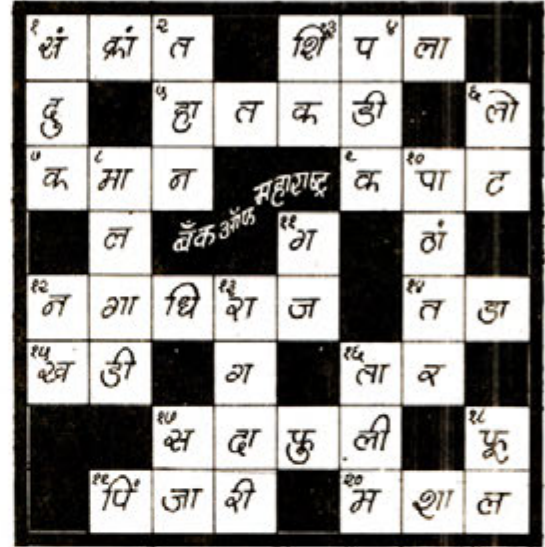 १ सं क्रां २ त ३ शिं ४ प ला
दु ५ हा त क डी ६ लो
७ क ८ मा न ९ क १० पा ट
ल ११ ग ठां
बँक ऑफ महाराष्ट्र
१२ न गा धि १३ रा ज १४ त डा
१५ ख डी ग १६ ता र
१७ स दा फु ली १८ फू
१९ पिं जा री २० म शा ल